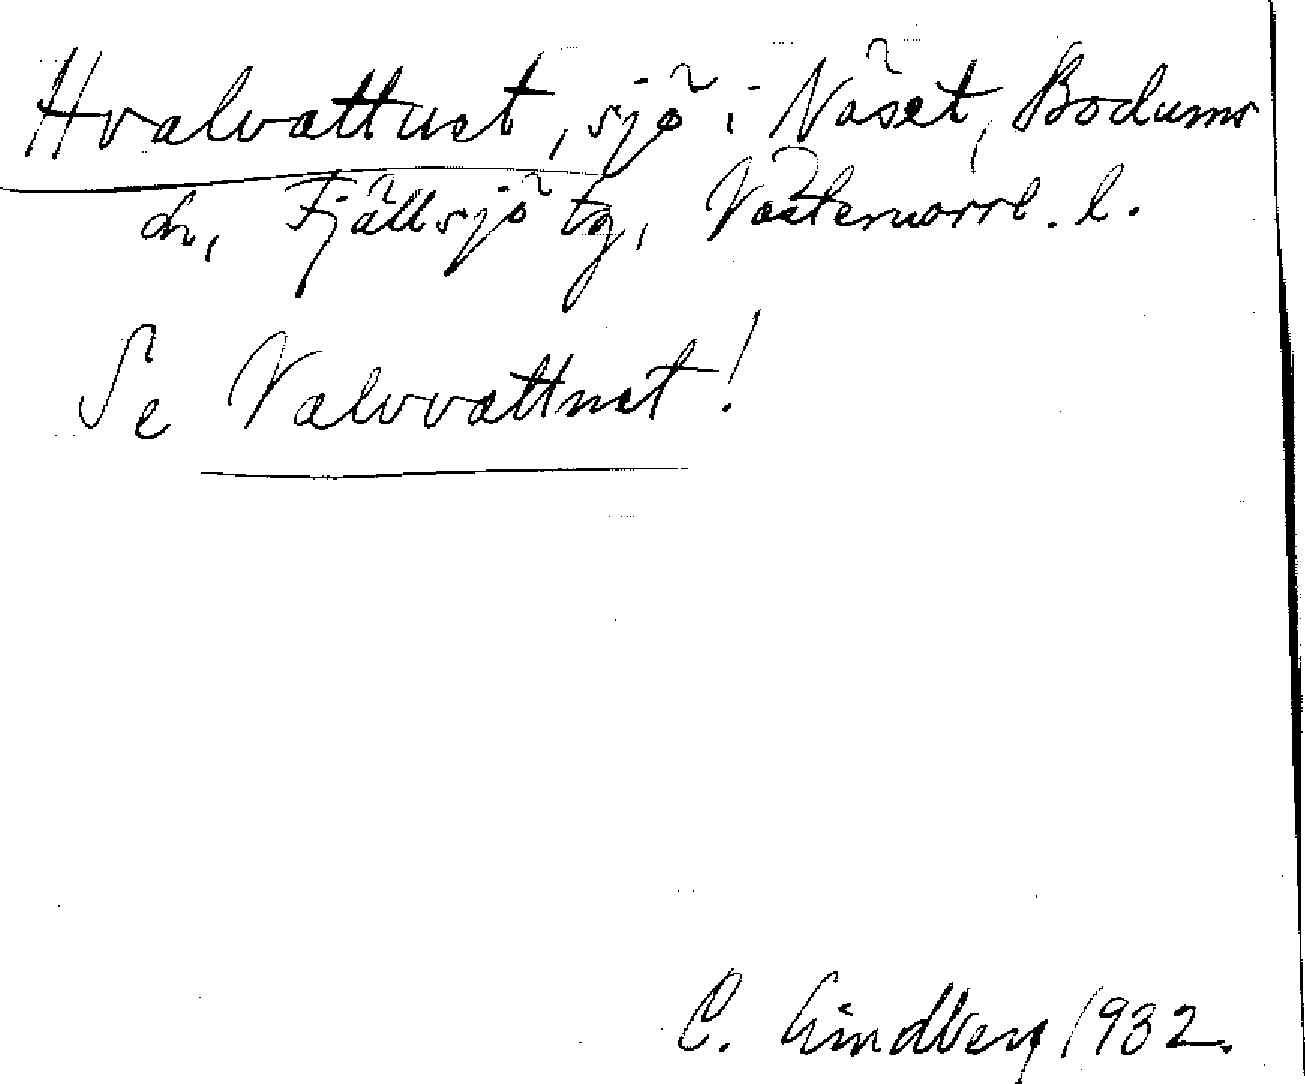 Hvalvattnet, sjö i Näset, Bodums
sn, Fjällsjö tg, Västernorrl. l.
Se Valvvattnet!
C. Lindberg 1932.